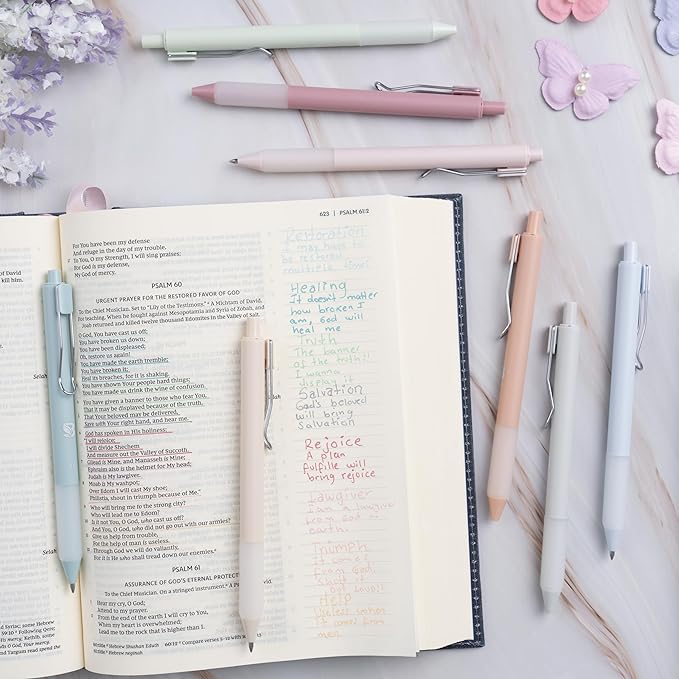 of David
kill him.
Selah
Selah
Syriac; some Hebrew
59:10 • Following Qere;
mercy. Kethib, some
and Targum read spend the
623 | PSALM 61:2
For You have been my defense
And refuge in the day of my trouble.
To You, O my Strength, I will sing praises;
For God is my defense,
My God of mercy.
PSALM 60
URGENT PRAYER FOR THE RESTORED FAVOR OF GOD
To the Chief Musician. Set to "Lily of the Testimony." A Michtam of David,
for teaching. When he fought against Mesopotamia and Syria of Zobah, and
Joab returned and killed twelve thousand Edomites in the Valley of Salt.
O God, You have cast us off;
You have broken us down;
You have been displeased;
Oh, restore us again!
You have made the earth tremble;
You have broken it;
Heal its breaches, for it is shaking.
You have shown Your people hard things;
You have made us drink the wine of confusion.
You have given a banner to those who fear You,
That it may be displayed because of the truth.
Selah
That Your beloved may be delivered,
Save with Your right hand, and hear me.
God has spoken in His holiness:
"I will rejoice;
I will divide Shechem
And measure out the Valley of Succoth.
Gilead is Mine, and Manasseh is Mine;
Ephraim also is the helmet for My head;
Judah is My lawgiver.
Moab is My washpot;
Over Edom I will cast My shoe;
Philistia, shout in triumph because of Me."
Who will bring me to the strong city?
Who will lead me to Edom?
Is it not You, O God, who cast us off?
And You, O God, who did not go out with our armies?
Give us help from trouble,
For the help of man is useless.
Through God we will do valiantly,
For it is He who shall tread down our enemies.
PSALM 61
ASSURANCE OF GOD'S ETERNAL PROTECT
To the Chief Musician. On a stringed instrument. A Psalm
Hear my cry, O God;
Attend to my prayer.
From the end of the earth I will cry to You,
When my heart is overwhelmed;
Lead me to the rock that is higher than I.
60:title • Hebrew Shushan Eduth 60:12 Compare verses 5–12 with
61:title • Hebrew neginah
Restoration
it may have to
be restored
multiple times
Healing
It doesn't matter
how broken I
am, God will
heal me
Truth
The banner
of the truth!!
I wanna
display it
Salvation
God's beloved
will bring
salvation
Rejoice
A plan
fulfille will
bring rejoice
Lawgiver
I am a lawgive
from God on
earth
Triumph
from God,
shout it
out loud!!
Help
useless when
it comes from
men